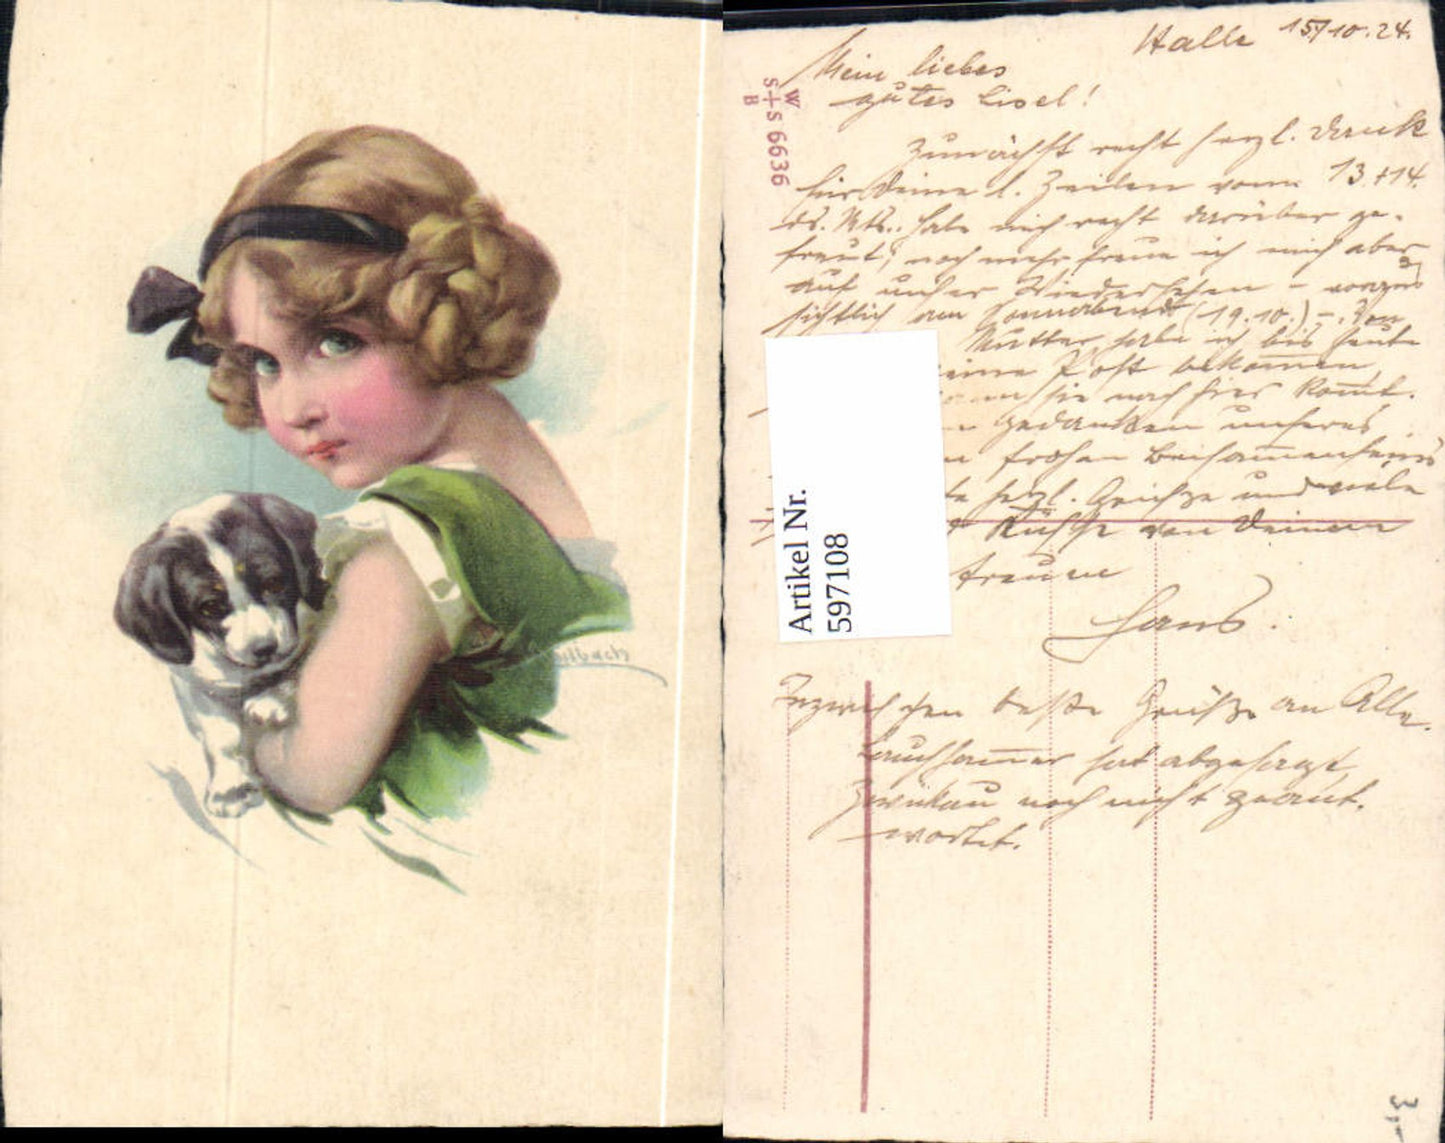 Halle 15/10.24.
Mein liebes
gutes Lisel!
Zunächst recht herzl. Dank
für Deine l. Zeilen vom 13.+14.
ds. Mts.. Habe mich recht darüber ge-
freut; noch mehr freue ich mich aber
auf unser Wiedersehen -
sichtlich am Sonnabend (19.10.) -. Von
Mutter habe ich bis heute
keine Post bekommen,
sie nach hier kommt.
Gedanken unseres
frohen Beisammenseins
herzl. Grüße und viele
Küsse von Deinem
treuen
Hans.
Inzwischen beste Grüße an Alle.
Lauchhammer hat abgesagt,
Zwickau noch nicht geant-
wortet.
W
S+S 6636
B
Artikel Nr.
597108
3,-